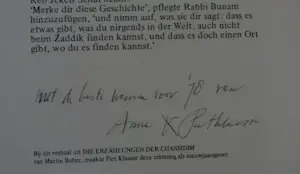 'Merke dir diese Geschichte', pflegte Rabbi Bunam
hinzuzufügen, 'und nimm auf, was sie dir sagt: dass es
etwas gibt, was du nirgends in der Welt, auch nicht
beim Zaddik finden kannst, und dass es doch einen Ort
gibt, wo du es finden kannst.'
met de beste wensen voor '78 van
Anna
Bij dit verhaal uit DIE ERZÄHLUNGEN DER CHASSIDIM
van Martin Buber, maakte Piet Klaasse deze tekening als nieuwjaarsgroet